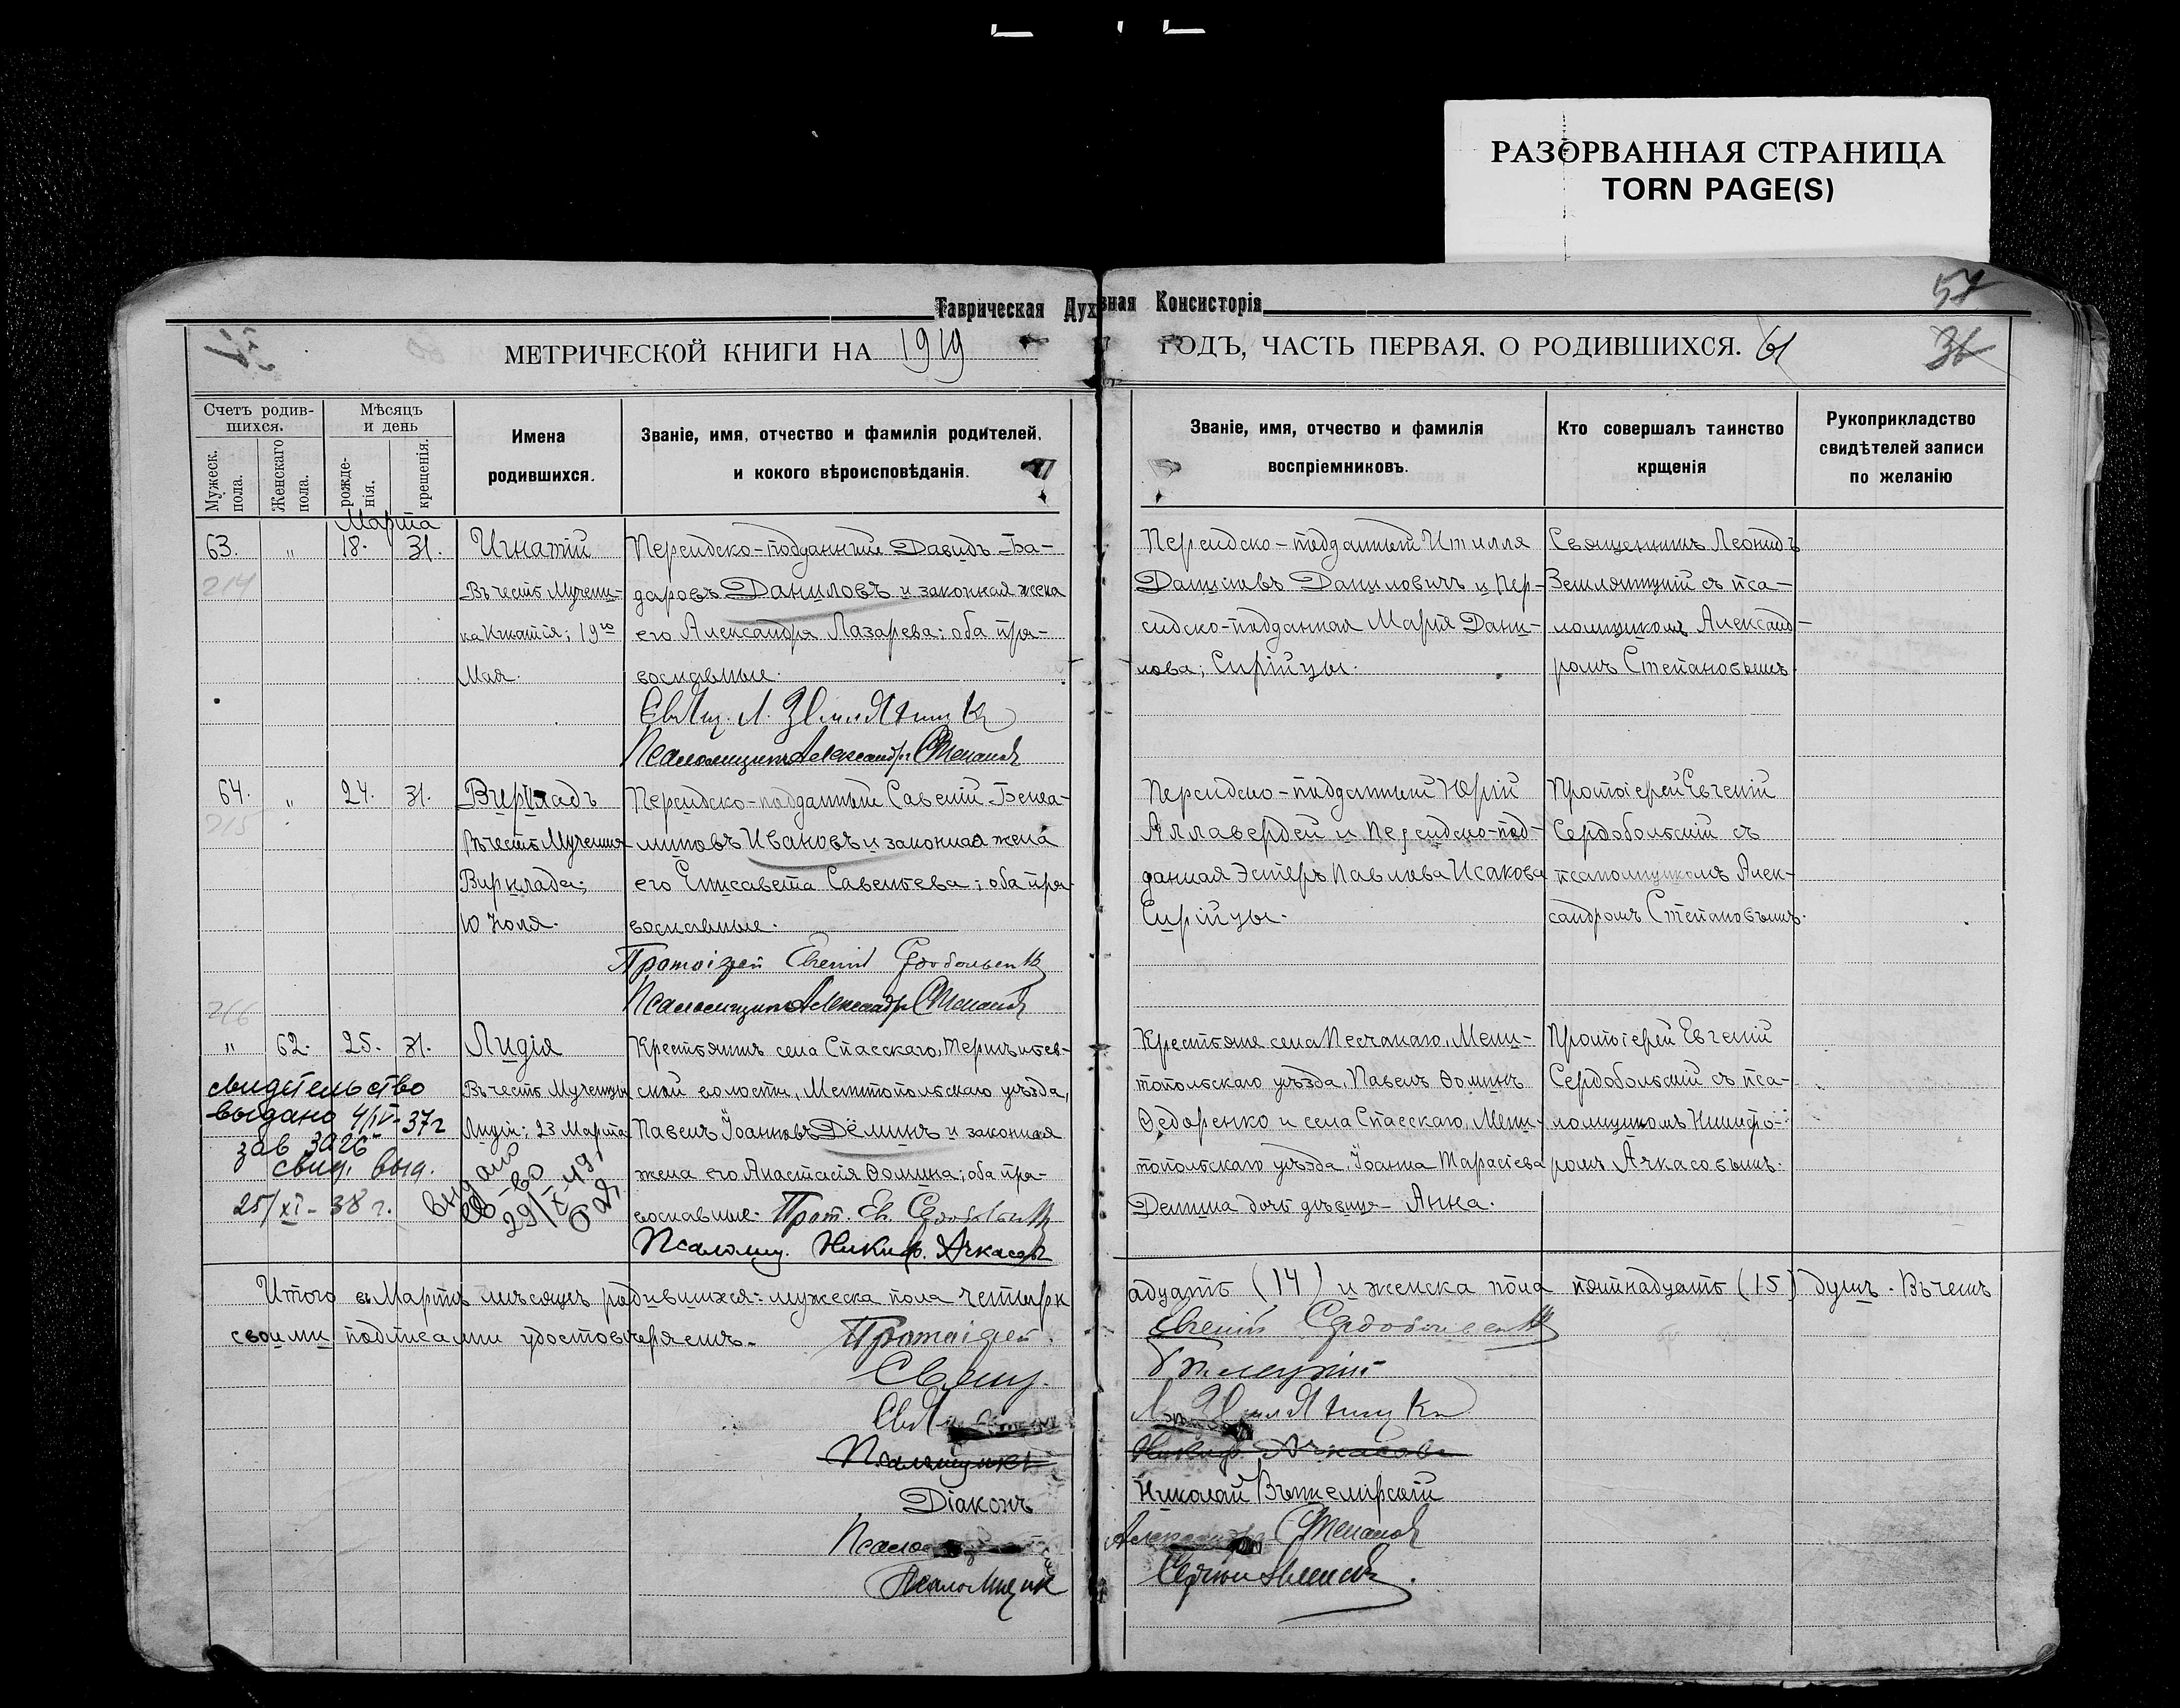 РАЗОРВАННАЯ СТРАНИЦА
TORN PAGE(S)
Таврическая Духовная Консисторія
57
МЕТРИЧЕСКОЙ КНИГИ НА 1919
ГОДЪ, ЧАСТЬ ПЕРВАЯ. О РОДИВШИХСЯ. 61
36
Счетъ родив-
шихся.
Мужеск.
пола.
Женскаго
пола.
Мѣсяцъ
и день
рожде-
нія.
крещенія.
Имена
родившихся.
Званіе, имя, отчество и фамилія родителей,
и кокого вѣроисповѣданія.
Званіе, имя, отчество и фамилія
воспріемниковъ.
Кто совершалъ таинство
крщенія
Рукоприкладство
свидѣтелей записи
по желанію
Марта
63. " 18. 31.
214
Игнатій
Въ честь Мучени-
ка Игнатія; 19го
Мая.
Персидско-подданный Давидъ Ба-
даровъ Даниловъ и законная жена
его Александра Лазарева; оба пра-
вославные.
Свящ. Л.
Псаломщикъ Александръ Степановъ
Персидско-подданный
Даниловъ Даниловичъ и Пер-
сидско-подданная Марія Дани-
лова; Сирійцы.
Священникъ Леонидъ
съ пса-
ломщикомъ Александ-
ромъ Степановымъ.
64. " 24. 31.
215
Вириладъ
Въ честь Мученика
10 Іюля.
Персидско-подданный Савелій
Ивановъ и законная жена
его Елисавета Савельева; оба пра-
вославные.
Протоіерей Евгеній Сердобольскій
Псаломщикъ Александръ Степановъ
Персидско-подданный Юрій
Аллавердей и Персидско-под-
данная Эстеръ Павлова Исакова
Сирійцы.
Протоіерей Евгеній
Сердобольскій съ
псаломщикомъ Алек-
сандромъ Степановымъ.
216
" 62. 25. 31.
Лидія
Въ честь Мученицы
Лидіи; 23 Марта
Крестьянинъ села Спасскаго,
волости, Мелитопольскаго уѣзда,
Павелъ Іоанновъ Дёминъ и законная
жена его Анастасія Ѳомина; оба пра-
вославные. Прот. Ев. Сердобольскій
Псаломщ. Никиф. Ачкасовъ
свидетельство
выдано 4/IV-37г
зав 3926
свид. выд.
25/XI-38 г.
выдано
Крестьяне села Песчанаго, Мели-
топольскаго уѣзда, Павелъ Ѳоминъ
Ѳедоренко и села Спасскаго, Мели-
топольскаго уѣзда, Іоанна Тарасіева
Демина дочь дѣвица Анна.
Протоіерей Евгеній
Сердобольскій съ пса-
ломщикомъ Никифо-
ромъ Ачкасовымъ.
Итого въ Мартѣ мѣсяцѣ родившихся: мужеска пола четырнадцать (14) и женска пола пятнадцать (15) душъ. Въ чемъ
своими подписами удостовѣряемъ. Протоіерей Евгеній Сердобольскій
Свящ.
Псаломщикъ Никиф. Ачкасовъ
Діаконъ Николай
Александръ Степановъ
Псаломщик